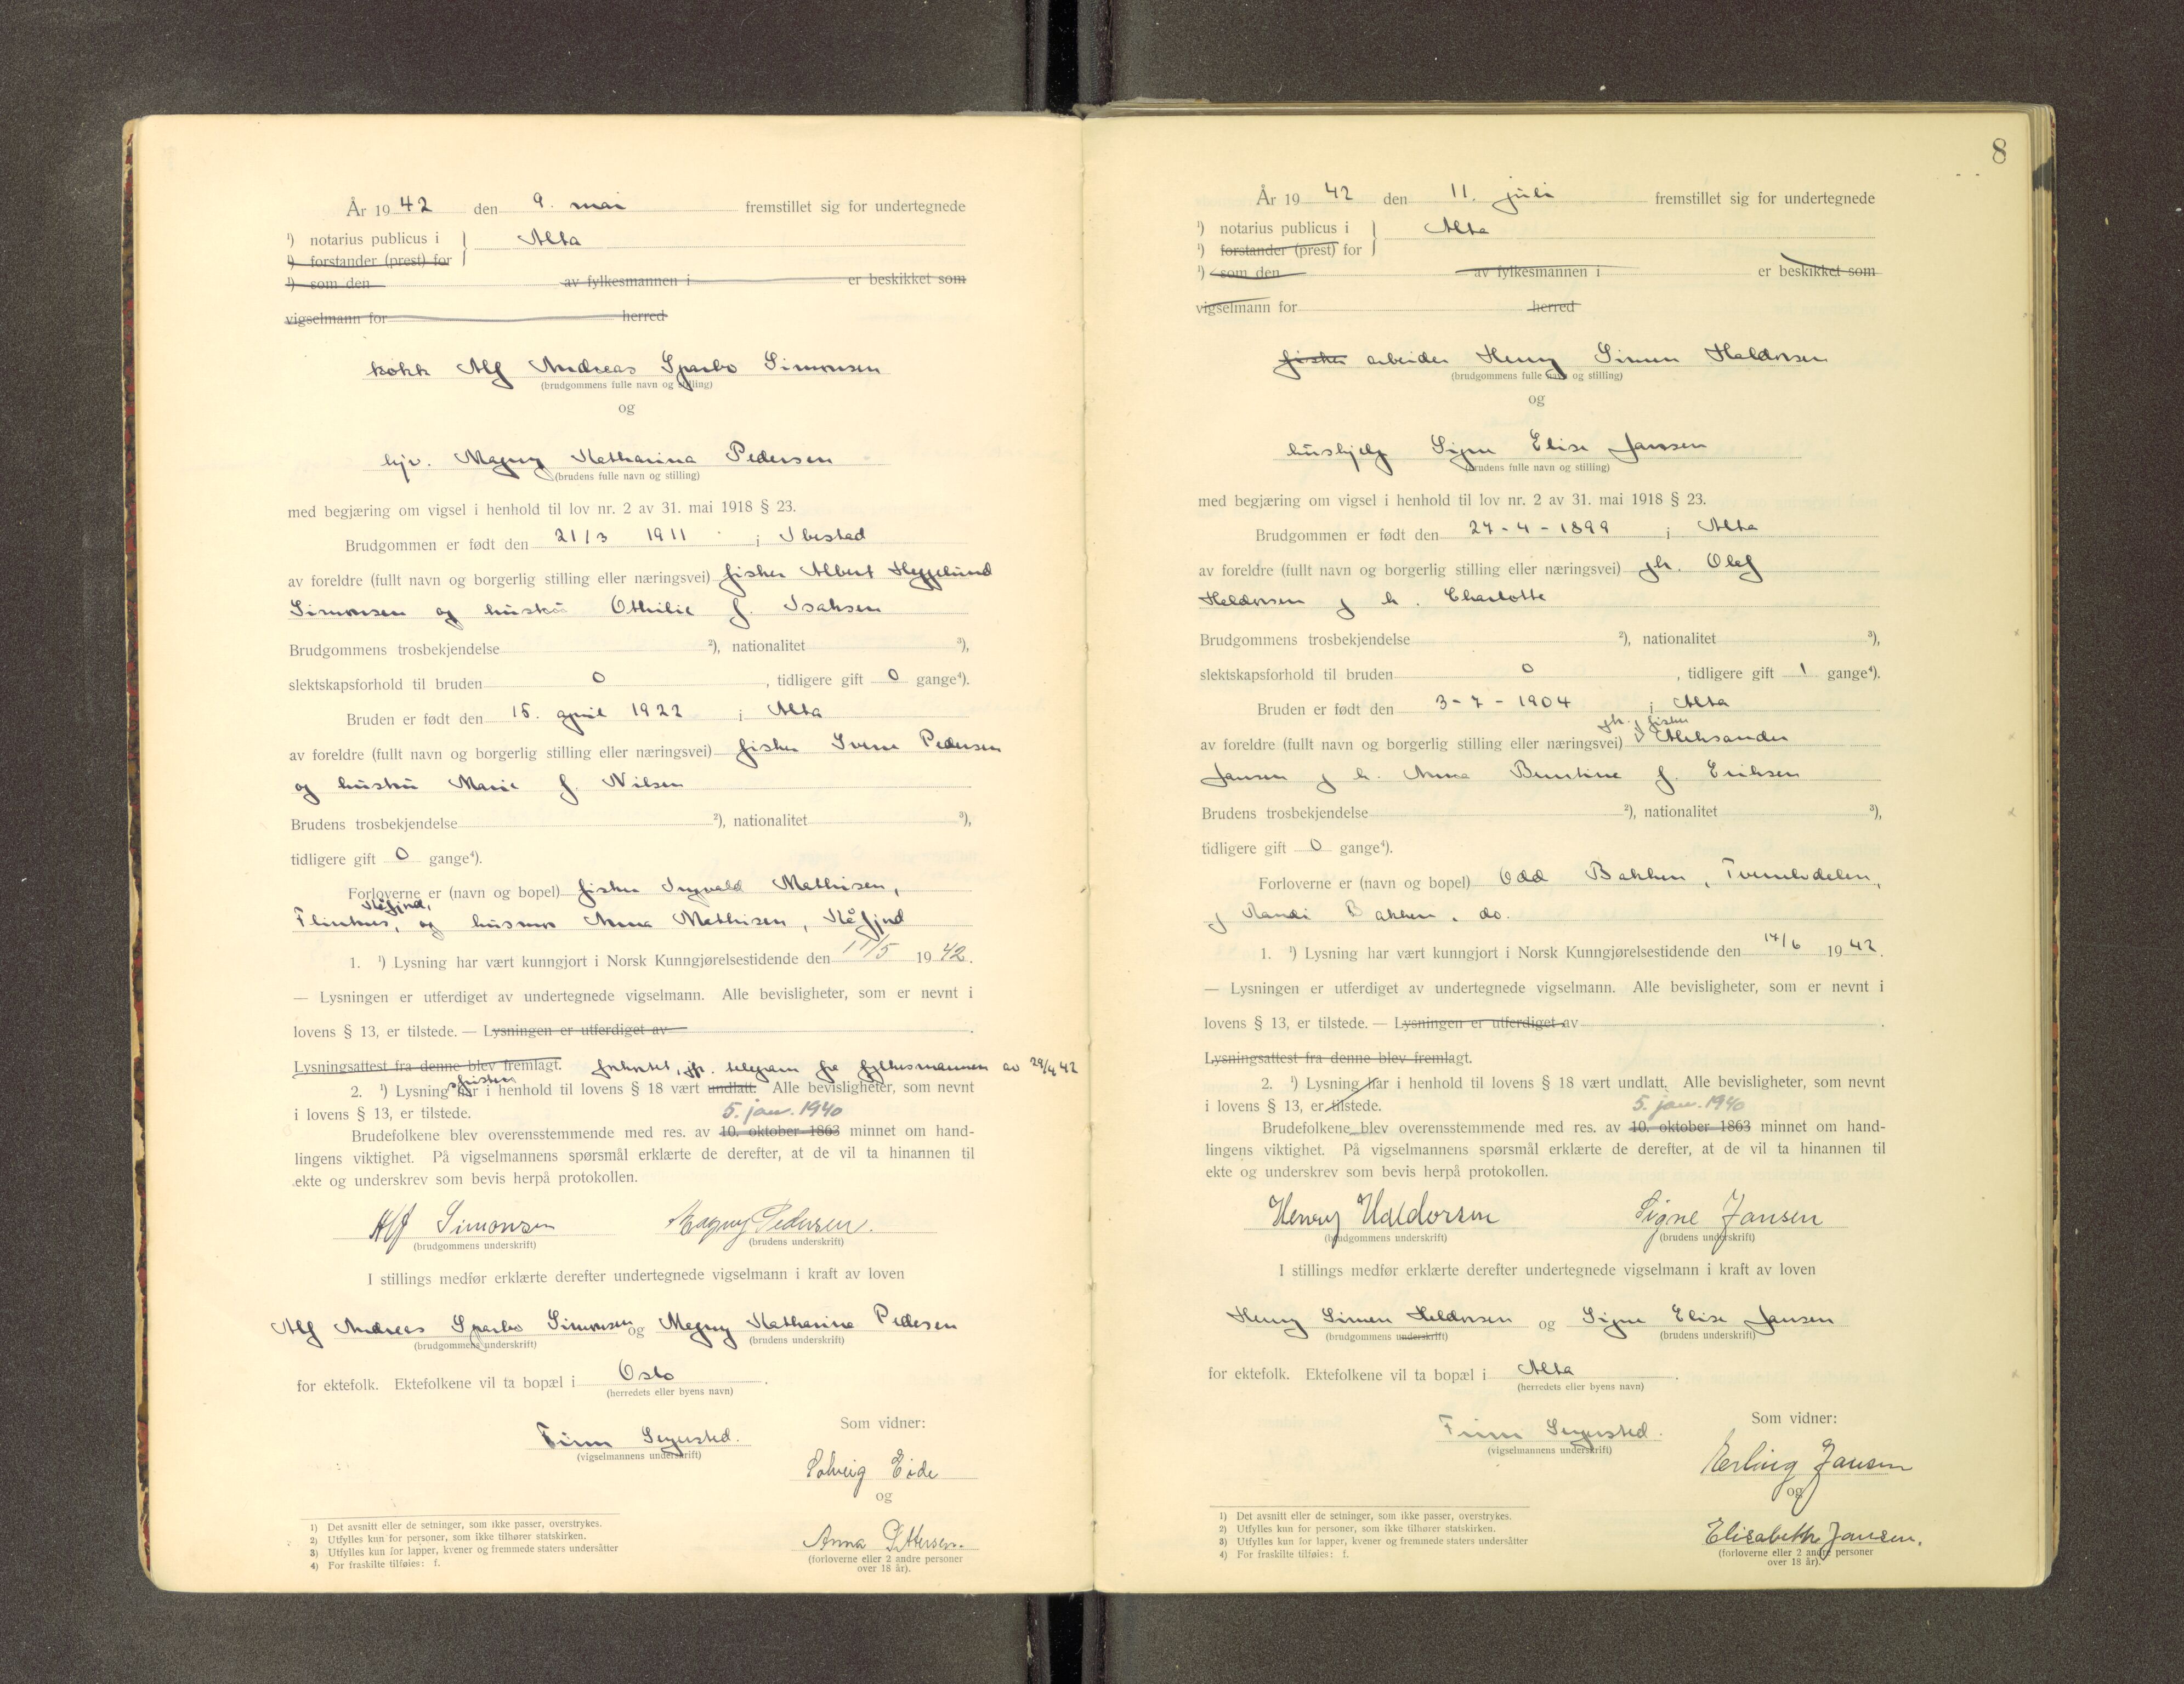 År 1942 den 9. mai fremstillet sig for undertegnede
¹) notarius publicus i } Alta
¹) forstander (prest) for
¹) som den av fylkesmannen i er beskikket som
vigselmann for herred
kokk Alf Andreas Sparbo Simonsen
(brudgommens fulle navn og stilling)
og
hjv. Magny Katharina Pedersen
(brudens fulle navn og stilling)
med begjæring om vigsel i henhold til lov nr. 2 av 31. mai 1918 § 23.
Brudgommen er født den 21/3 1911 i Ibestad
av foreldre (fullt navn og borgerlig stilling eller næringsvei) fisker Albert Heggelund
Simonsen og hustru Othilie f. Isaksen
Brudgommens trosbekjendelse ²), nationalitet ³),
slektskapsforhold til bruden 0, tidligere gift 0 gange⁴).
Bruden er født den 15. april 1922 i Alta
av foreldre (fullt navn og borgerlig stilling eller næringsvei) fisker Sverre Pedersen
og hustru Marie f. Nilsen
Brudens trosbekjendelse ²), nationalitet ³),
tidligere gift 0 gange⁴).
Forloverne er (navn og bopel) fisker Ingvald Mathisen,
Kåfjord,
og husmor Anna Mathisen, Kåfjord
1. ¹) Lysning har vært kunngjort i Norsk Kunngjørelsestidende den 11/5 1942.
— Lysningen er utferdiget av undertegnede vigselmann. Alle bevisligheter, som er nevnt i
lovens § 13, er tilstede. — Lysningen er utferdiget av .
Lysningsattest fra denne blev fremlagt. forkortet, jfr. telegram fra fylkesmannen av 29/4 42
2. ¹) Lysningsfristen har i henhold til lovens § 18 vært undlatt. Alle bevisligheter, som nevnt
i lovens § 13, er tilstede. 5. jan. 1940
Brudefolkene blev overensstemmende med res. av 10. oktober 1863 minnet om hand-
lingens viktighet. På vigselmannens spørsmål erklærte de derefter, at de vil ta hinannen til
ekte og underskrev som bevis herpå protokollen.
Alf Simonsen Magny Pedersen.
(brudgommens underskrift) (brudens underskrift)
I stillings medfør erklærte derefter undertegnede vigselmann i kraft av loven
Alf Andreas Sparbo Simonsen og Magny Katharina Pedersen
(brudgommens underskrift) (brudens underskrift)
for ektefolk. Ektefolkene vil ta bopæl i Oslo.
(herredets eller byens navn)
Som vidner:
Finn Segelsted.
(vigselmannens underskrift)
Solveig Eide
og
Anna Pettersen.
(forloverne eller 2 andre personer
over 18 år).
1) Det avsnitt eller de setninger, som ikke passer, overstrykes.
2) Utfylles kun for personer, som ikke tilhører statskirken.
3) Utfylles kun for lapper, kvener og fremmede staters undersåtter
4) For fraskilte tilføies: f.
8
År 1942 den 11. juli fremstillet sig for undertegnede
¹) notarius publicus i } Alta
¹) forstander (prest) for
¹) som den av fylkesmannen i er beskikket som
vigselmann for herred
fisker arbeider Henry Simen Haldorsen
(brudgommens fulle navn og stilling)
og
hushjelp Signe Elise Jansen
(brudens fulle navn og stilling)
med begjæring om vigsel i henhold til lov nr. 2 av 31. mai 1918 § 23.
Brudgommen er født den 27-4-1899 i Alta
av foreldre (fullt navn og borgerlig stilling eller næringsvei) gb. Olaf
Haldorsen og h. Charlotte
Brudgommens trosbekjendelse ²), nationalitet ³),
slektskapsforhold til bruden 0, tidligere gift 1 gange⁴).
Bruden er født den 3-7-1904 i Alta
gb. og fisker
av foreldre (fullt navn og borgerlig stilling eller næringsvei) Aleksander
Jansen og h. Anna Berntine f. Eriksen
Brudens trosbekjendelse ²), nationalitet ³),
tidligere gift 0 gange⁴).
Forloverne er (navn og bopel) Odd Bakken, Tverrelvdalen,
og Randi Bakken, do.
1. ¹) Lysning har vært kunngjort i Norsk Kunngjørelsestidende den 14/6 1942.
— Lysningen er utferdiget av undertegnede vigselmann. Alle bevisligheter, som er nevnt i
lovens § 13, er tilstede. — Lysningen er utferdiget av .
Lysningsattest fra denne blev fremlagt.
2. ¹) Lysning har i henhold til lovens § 18 vært undlatt. Alle bevisligheter, som nevnt
i lovens § 13, er tilstede. 5. jan. 1940
Brudefolkene blev overensstemmende med res. av 10. oktober 1863 minnet om hand-
lingens viktighet. På vigselmannens spørsmål erklærte de derefter, at de vil ta hinannen til
ekte og underskrev som bevis herpå protokollen.
Henry Haldorsen Signe Jansen
(brudgommens underskrift) (brudens underskrift)
I stillings medfør erklærte derefter undertegnede vigselmann i kraft av loven
Henry Simen Haldorsen og Signe Elise Jansen
(brudgommens underskrift) (brudens underskrift)
for ektefolk. Ektefolkene vil ta bopæl i Alta.
(herredets eller byens navn)
Som vidner:
Finn Segelsted.
(vigselmannens underskrift)
Erling Jansen
og
Elisabeth Jansen.
(forloverne eller 2 andre personer
over 18 år).
1) Det avsnitt eller de setninger, som ikke passer, overstrykes.
2) Utfylles kun for personer, som ikke tilhører statskirken.
3) Utfylles kun for lapper, kvener og fremmede staters undersåtter
4) For fraskilte tilføies: f.